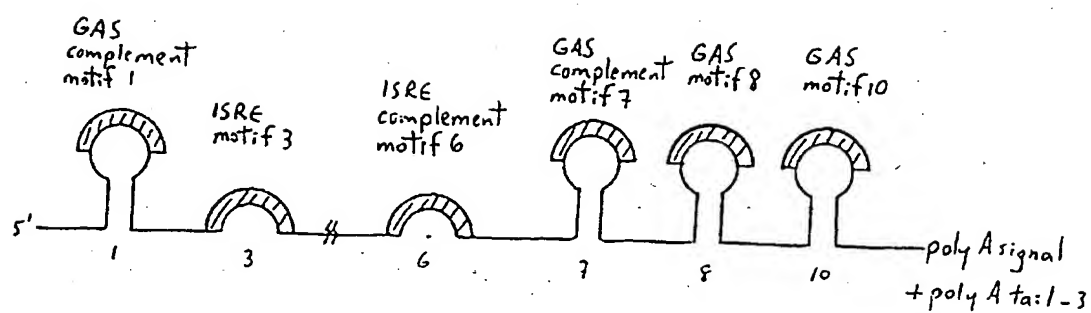 GAS
complement
motif 1
ISRE
motif 3
ISRE
complement
motif 6
GAS
complement
motif 7
GAS
motif 8
GAS
motif 10
5'
1
3
6
7
8
10
poly A signal
+ poly A tail-3